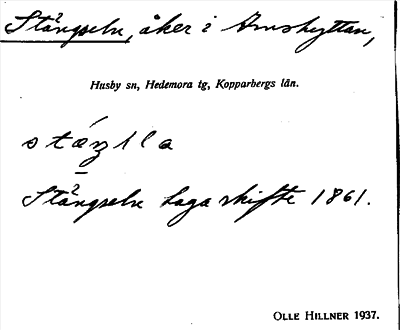 Stängseln, åker i Arnshyttan,
Husby sn, Hedemora tg, Kopparbergs län.
Stängseln Laga skifte 1861.
OLLE HILLNER 1937.